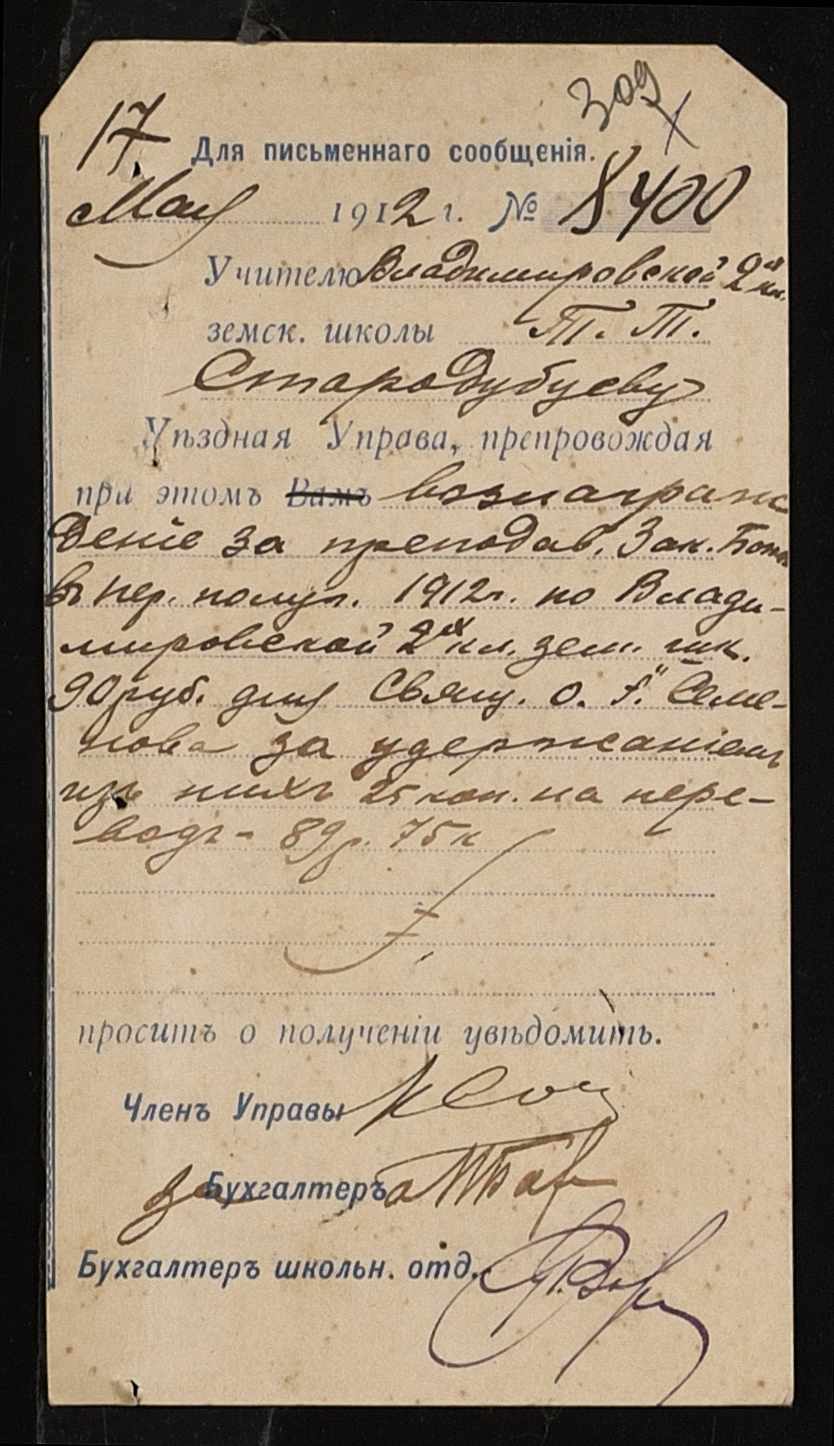 309
17 Для письменнаго сообщенія.
Мая 1912 г. № 8400
Учителю Владимировской 2х кл.
земск. школы Т. Т.
Стародубцеву
Уѣздная Управа, препровождая
при этомъ Вамъ вознаграж
деніе за преподав. Зак. Божія
въ пер. полуг. 1912 г. по Влади-
мировской 2х кл. зем. шк.
90 руб. для Свящ. о. Семе-
нова за удержаніемъ
изъ нихъ 25 коп. на пере-
водъ - 89 р. 75 к
проситъ о полученіи увѣдомить.
Членъ Управы
за Бухгалтеръ
Бухгалтеръ школьн. отд.